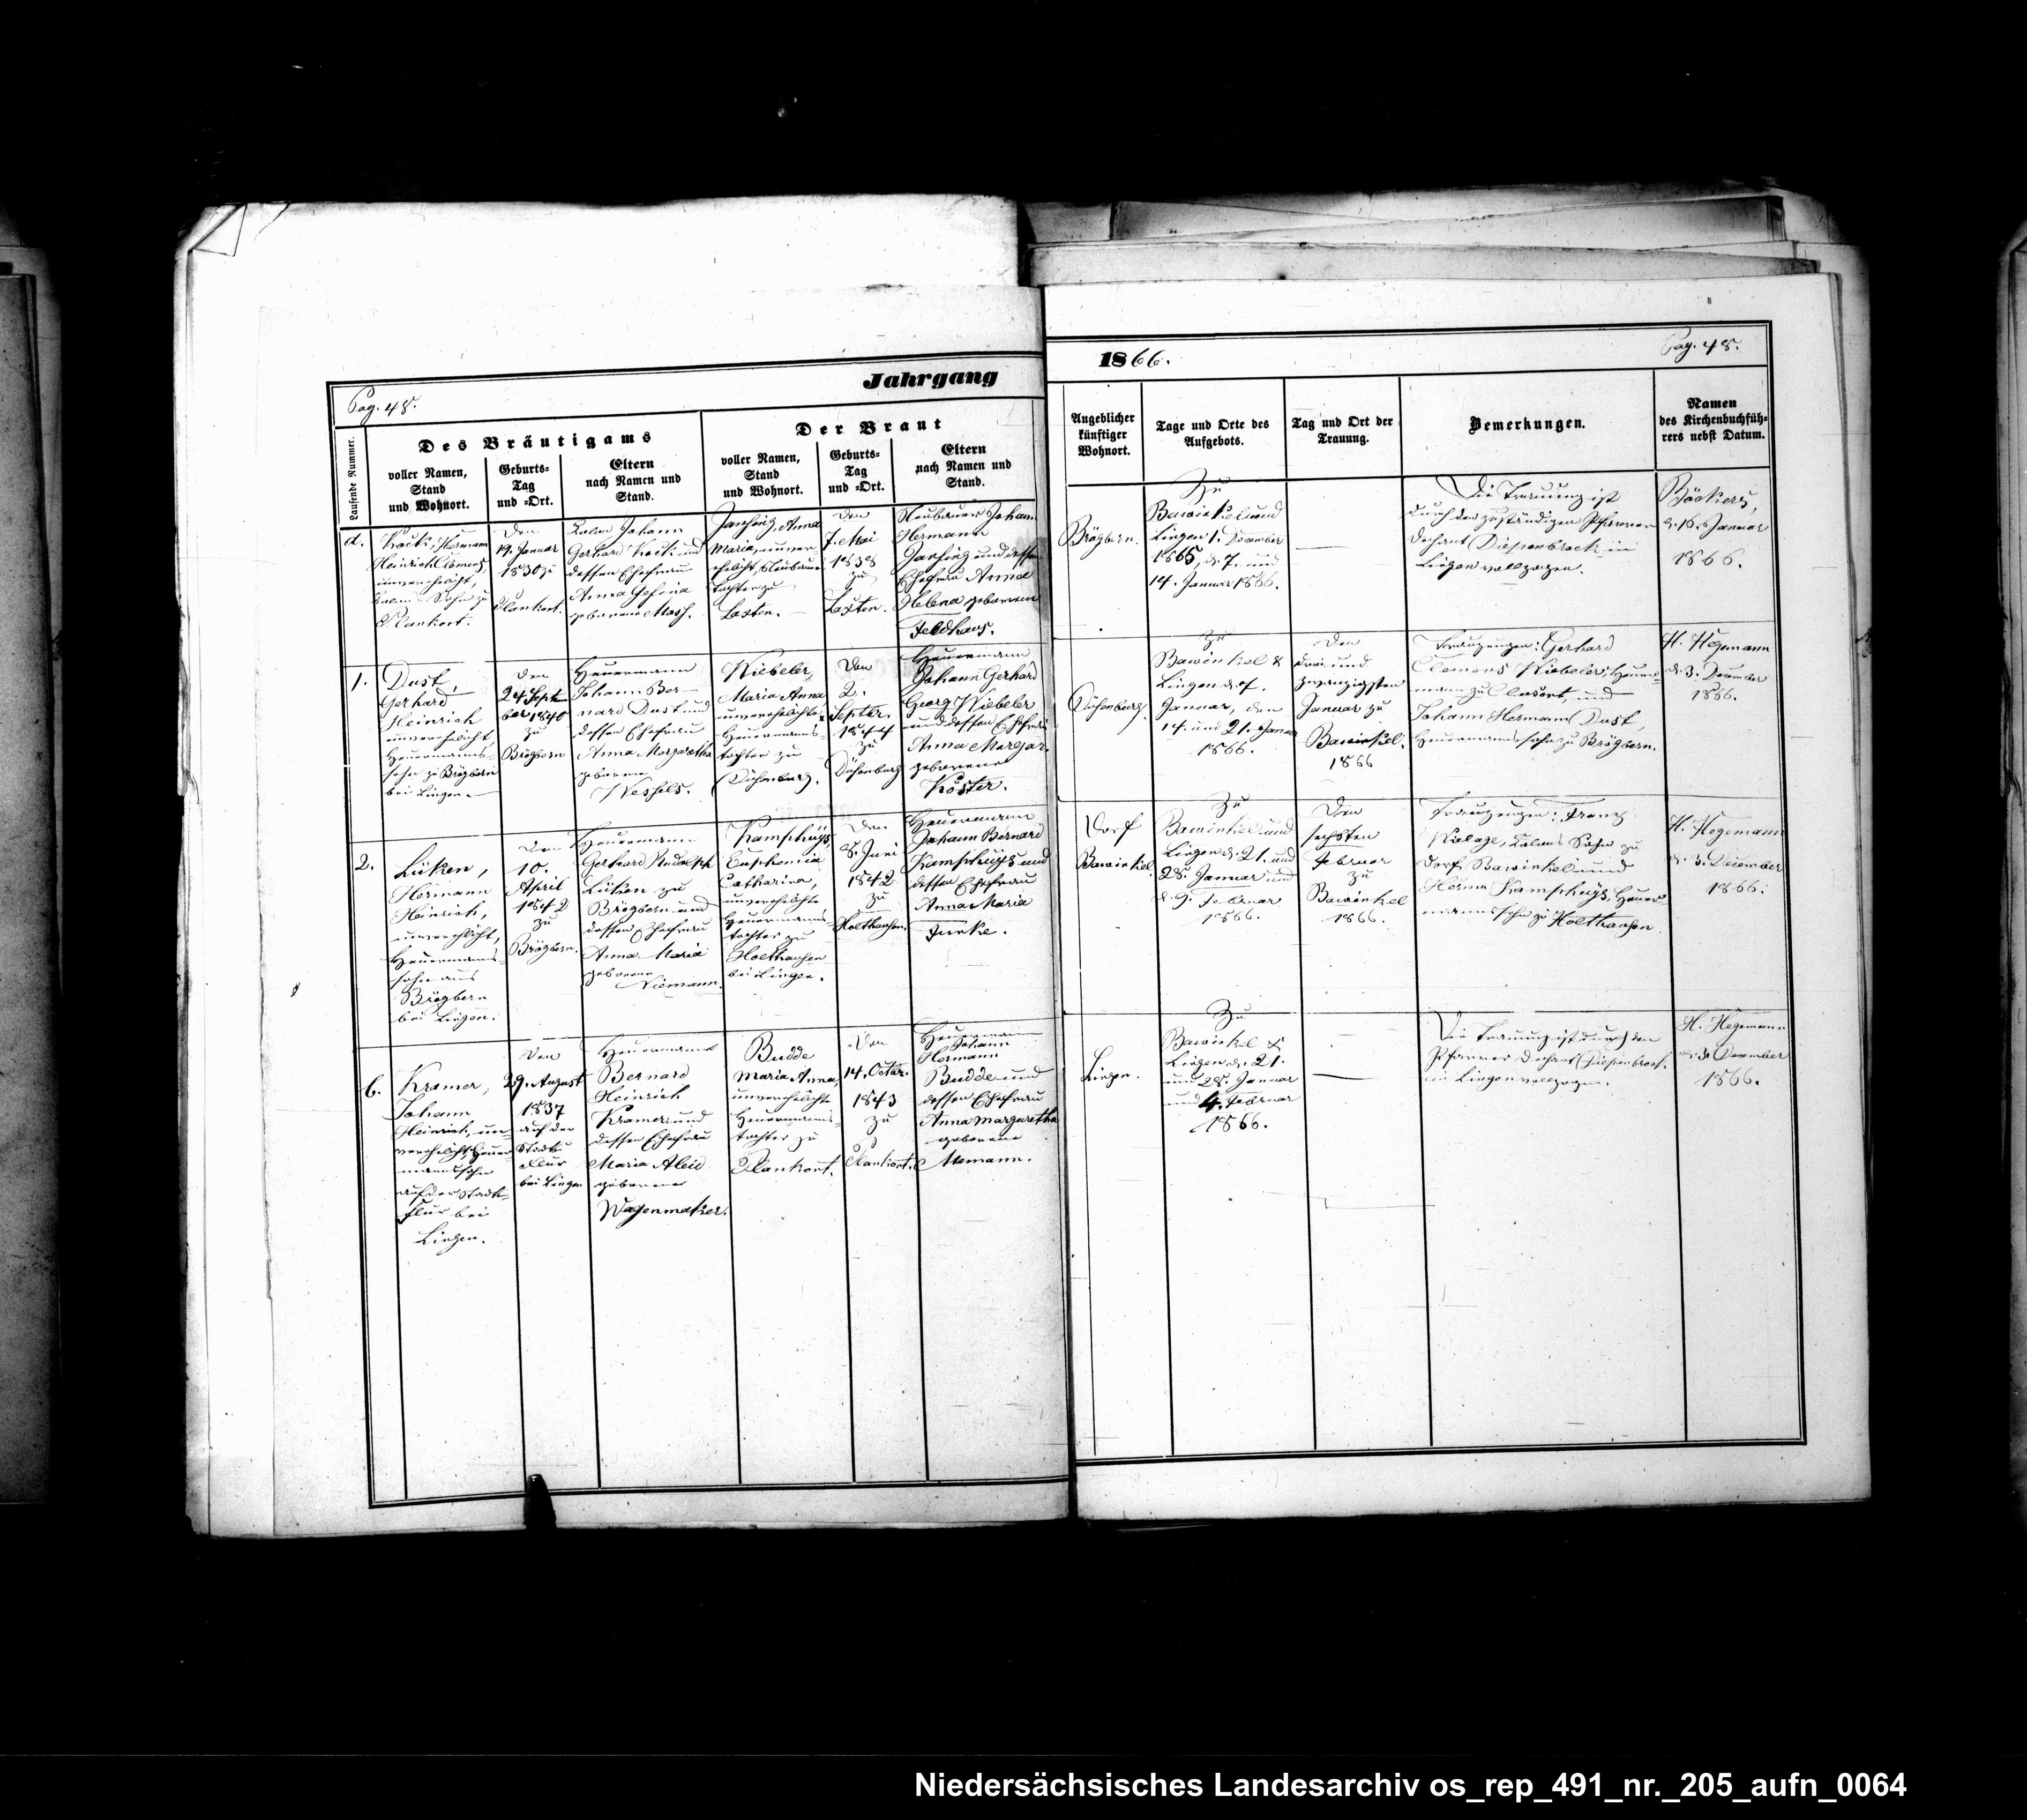 Jahrgang
1866.
Pag. 48.
Pag. 48.
Laufende Nummer.
Des Bräutigams
voller Namen,
Stand
und Wohnort.
Geburts-
Tag
und =Ort.
Eltern
nach Namen und
Stand.
Der Braut
voller Namen,
Stand
und Wohnort.
Geburts-
Tag
und =Ort.
Eltern
nach Namen und
Stand.
Angeblicher
künftiger
Wohnort.
Tage und Orte des
Aufgebots.
Tag und Ort der
Trauung.
Bemerkungen.
Namen
des Kirchenbuchfüh-
rers nebst Datum.
a.
Hermann
Heinrich Clemens,
unverehelicht,
Sohn zu
Plankort.
Den
19. Januar
1830 zu
Plankort.
Johann
Gerhard und
dessen Ehefrau
Anna Gesina
geborene
Anna
Maria, unver-
ehelicht, Neubauer
tochter zu
Laxten.
Den
7. Mai
1838
zu
Laxten.
Neubauer Johann
Hermann
und dessen
Ehefrau Anna
Helena geborene
Feldhaus.
Brögbern.
Zu
Bawinkel und
Lingen
1865, d. 7. und
14. Januar 1866.
Die Trauung ist
durch den zuständigen Pfarrer
Dechant Diepenbrock in
Lingen vollzogen.
d. 16. Januar
1866.
1.
Dust,
Gerhard
Heinrich
unverehelicht,
Heuermanns-
sohn zu Brögbern
bei Lingen.
Den
24. Septem
ber 1840
zu
Brögbern
Heuermann
Johann Ber-
nard Dust und
dessen Ehefrau
Anna Margaretha
geborene
Wessels.
Maria Anna
unverehelichte,
Heuermanns-
tochter zu
Den
2.
Septbr.
1844
zu
Heuermann
Johann Gerhard
Georg
und dessen Ehefrau
Anna Margar.
geborene
Köster.
Zu
Bawinkel &
Lingen
Januar, den
14. und 21. Januar
1866.
Den
drei und
zwanzigsten
Januar zu
Bawinkel.
1866
Trauzeugen: Gerhard
Clemens Heuer-
mann zu Clusort, und
Johann Hermann Dust,
Heuermannssohn zu Brögbern.
H. Hegemann
d. 3. December
1866.
2.
Lüken,
Hermann
Heinrich,
unverehelicht,
Heuermanns-
sohn aus
Brögbern
bei Lingen.
Den
10.
April
1842
zu
Brögbern.
Heuermann
Gerhard Rudolph
Lüken zu
Brögbern und
dessen Ehefrau
Anna Maria
geborene
Niemann.
Kamphuys,
Euphemia
Catharina,
unverehelichte
Heuermanns-
tochter zu
Holthausen
bei Lingen.
Den
8. Juni
1842
zu
Holthausen.
Heuermann
Johann Bernard
Kamphuys und
dessen Ehefrau
Anna Maria
Funke.
Dorf
Bawinkel.
Zu
Bawinkel und
Lingen d. 21. und
28. Januar und
Februar
1866.
Den
sechsten
Februar
zu
Bawinkel
1866.
Trauzeugen: Franz
Sohn zu
Dorf Bawinkel und
Herm. Kamphuys, Heuer-
mannssohn zu Holthausen.
H. Hegemann
d. 3. December
1866.
Kramer,
Johann
Heinrich, un-
verehelicht, Heuer-
mannssohn
auf der Stadt-
flur bei
Lingen.
Den
29. August
1837
auf der
Stadt-
flur
bei Lingen
Heuermann
Bernard
Heinrich
Kramer und
dessen Ehefrau
Maria Aleid
geborene
Wagenmaker.
Budde
Maria Anna,
unverehelichte
Heuermanns-
tochter zu
Plankort.
Den
14. Octbr.
1843
zu
Plankort.
Heuermann
Johann
Hermann
Budde und
dessen Ehefrau
Anna Margaretha
geborene
Lingen.
Zu
Bawinkel &
Lingen d. 21.
und 28. Januar
und 4. Februar
1866.
Die Trauung ist durch den
Pfarrer Dechant Diepenbrock
in Lingen vollzogen.
H. Hegemann
d. 3. December
1866.
Niedersächsisches Landesarchiv os_rep_491_nr._205_aufn_0064